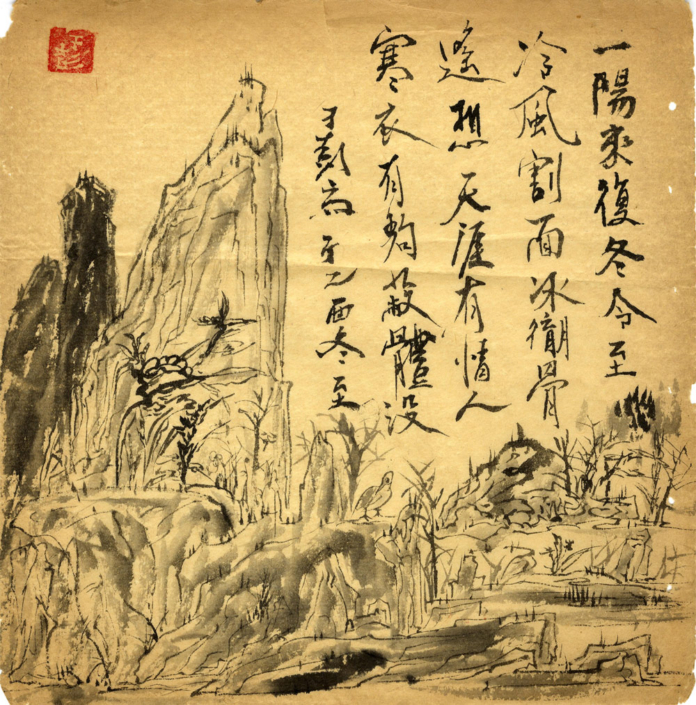 一陽來復冬令至
冷風割面冰徹骨
遙想天涯有情人
寒衣有夠蔽體沒
于彭寫于乙酉冬至
于彭